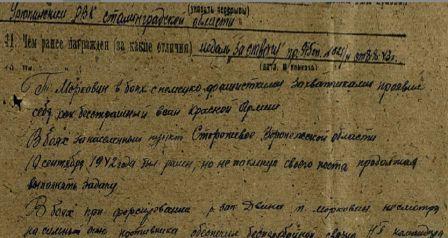 Урюпинским РВК Сталинградской области
(указать перерывы)
11. Чем ранее награжден (за какие отличия) медаль За отвагу
Т. Морковин в боях с немецко-фашистскими захватчиками проявил
себя как бесстрашный воин Красной Армии
В боях за населенный пункт Сторожевое Воронежской области
сентября 1942 года был ранен, но не покинул своего поста продолжая
выполнять задачу
В боях при форсировании р. Зап. Двина т. Морковин несмотря
на сильный огонь противника обеспечил бесперебойной связью